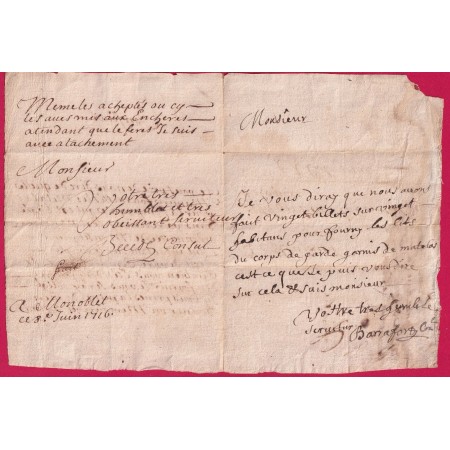 Memeles acheptés ou cy
les aues mis aux Encheres
atindant que le feres Je suis
avec atachement
Monsieur
votre tres
humble et tres
obeissant serviteur
Consul
A Monoblet
ce 8e Juin 1716
Monsieur
Je vous diray que nous avons
fait vinget billets sur vinget
habitans pour fourny les lits
du corps de garde garnis de matelas
cest ce que Je puis vous dire
sur cela & suis monsieur
Vostre tres humble
serviteur